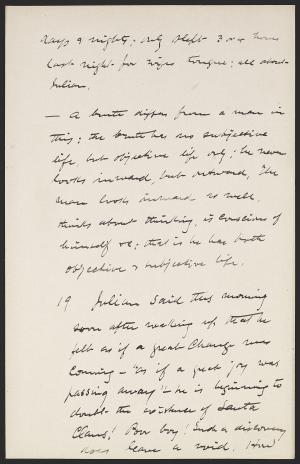 days & nights; only slept 3 or 4 hours
last night for tongue; all about
Julian.
— A brute differs from a man in
this; the brute has no subjective
life, but objective life only; he never
looks inward, but outward, The
man looks inward as well,
thinks about thinking, is conscious of
himself &c; that is he has both
objective & subjective life.
19 Julian said this morning
soon after waking up that he
felt as if a great change was
coming — "as if a great joy was
passing away" — he is beginning to
doubt the existence of Santa
Claus! Poor boy! Such a discovery
does leave a void. How